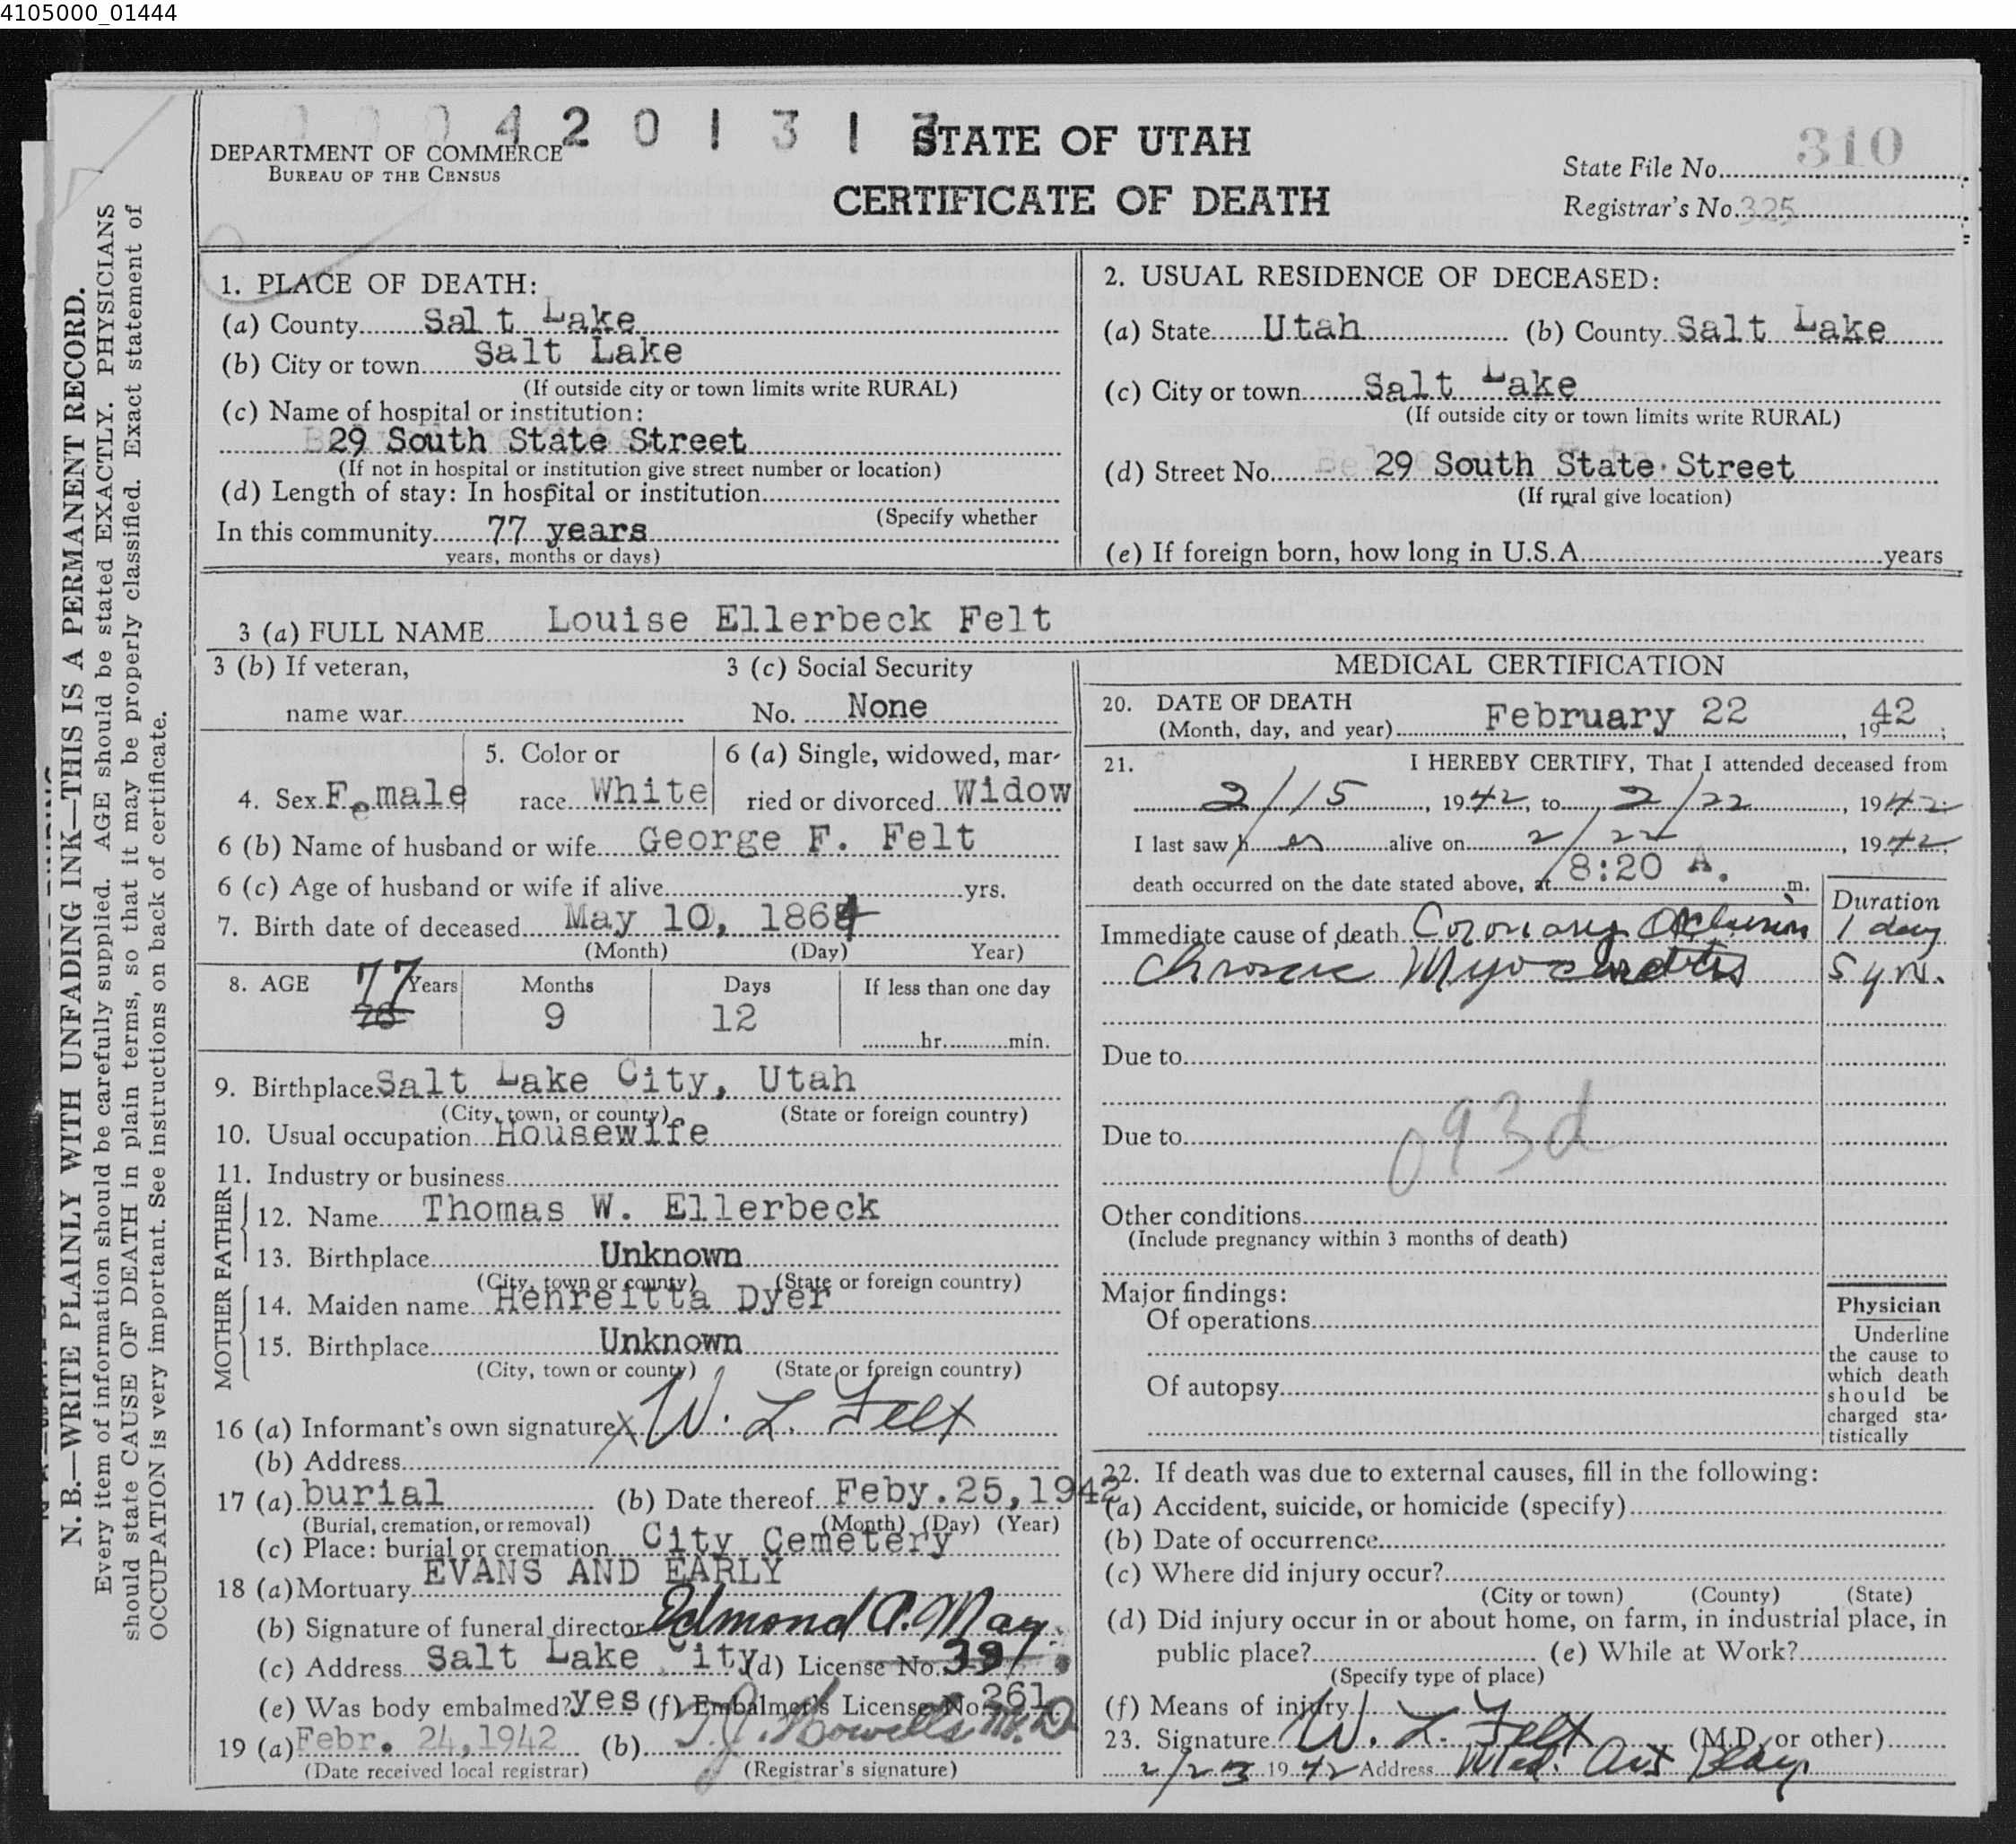 4105000_01444
0004201313
DEPARTMENT OF COMMERCE
BUREAU OF THE CENSUS
STATE OF UTAH
CERTIFICATE OF DEATH
310
State File No.
Registrar's No. 325
N. B.—WRITE PLAINLY WITH UNFADING INK—THIS IS A PERMANENT RECORD.
Every item of information should be carefully supplied. AGE should be stated EXACTLY. PHYSICIANS
should state CAUSE OF DEATH in plain terms, so that it may be properly classified. Exact statement of
OCCUPATION is very important. See instructions on back of certificate.
1. PLACE OF DEATH:
(a) County Salt Lake
(b) City or town Salt Lake
(If outside city or town limits write RURAL)
(c) Name of hospital or institution:
29 South State Street
(If not in hospital or institution give street number or location)
(d) Length of stay: In hospital or institution
(Specify whether
In this community 77 years
years, months or days)
2. USUAL RESIDENCE OF DECEASED:
(a) State Utah (b) County Salt Lake
(c) City or town Salt Lake
(If outside city or town limits write RURAL)
(d) Street No. 29 South State Street
(If rural give location)
(e) If foreign born, how long in U.S.A. years
3 (a) FULL NAME Louise Ellerbeck Felt
3 (b) If veteran,
name war
3 (c) Social Security
No. None
4. Sex Female
5. Color or
race White
6 (a) Single, widowed, mar-
ried or divorced Widow
6 (b) Name of husband or wife George F. Felt
6 (c) Age of husband or wife if alive yrs.
7. Birth date of deceased May 10, 1864
(Month) (Day) Year)
8. AGE 77 Years Months Days If less than one day
76 9 12 hr. min.
9. Birthplace Salt Lake City, Utah
(City, town, or county) (State or foreign country)
10. Usual occupation Housewife
11. Industry or business
FATHER
12. Name Thomas W. Ellerbeck
13. Birthplace Unknown
(City, town or county) (State or foreign country)
MOTHER
14. Maiden name Henreitta Dyer
15. Birthplace Unknown
(City, town or county) (State or foreign country)
16 (a) Informant's own signature X W. L. Felt
(b) Address
17 (a) burial (b) Date thereof Feby. 25, 1942
(Burial, cremation, or removal) (Month) (Day) (Year)
(c) Place: burial or cremation City Cemetery
18 (a) Mortuary EVANS AND EARLY
(b) Signature of funeral director Edmond A. May
(c) Address Salt Lake City (d) License No. 391
(e) Was body embalmed? yes (f) Embalmer's License No. 261
19 (a) Febr. 24, 1942 (b) T. J. Howells M. D
(Date received local registrar) (Registrar's signature)
MEDICAL CERTIFICATION
20. DATE OF DEATH
(Month, day, and year) February 22, 1942;
21. I HEREBY CERTIFY, That I attended deceased from
2/15, 1942, to 2/22, 1942;
I last saw h er alive on 2/22, 1942;
death occurred on the date stated above, at 8:20 A. m.
Duration
Immediate cause of death Coronary Occlusion 1 day
Chronic Myocarditis 5 yrs.
Due to
Due to
093d
Other conditions
(Include pregnancy within 3 months of death)
Major findings:
Of operations
Of autopsy
Physician
Underline
the cause to
which death
should be
charged sta-
tistically
22. If death was due to external causes, fill in the following:
(a) Accident, suicide, or homicide (specify)
(b) Date of occurrence
(c) Where did injury occur?
(City or town) (County) (State)
(d) Did injury occur in or about home, on farm, in industrial place, in
public place? (e) While at Work?
(Specify type of place)
(f) Means of injury
23. Signature W. L. Felt (M.D. or other)
2/23 1942 Address Med. Art Bldg.